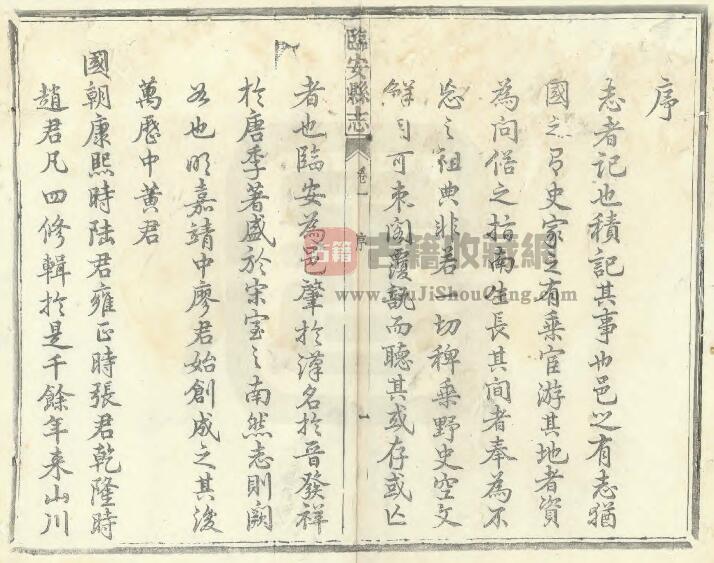 序
志者記也積記其事也邑之有志猶
國之有史家之有乘宦游其地者資
為問俗之指南生長其間者奉為不
忘之祖典非若一切稗乘野史空文
鮮用可束閣覆瓿而聽其或存或亡
臨安縣志
卷一
序
一
者也臨安為邑肇於漢名於晉發祥
於唐季著盛於宋室之南然志則闕
如也明嘉靖中廖君始創成之其後
萬曆中黃君
國朝康熙時陆君雍正時張君乾隆時
趙君凡四修輯於是千餘年来山川
古籍
古籍收藏網
www.GuJiShouCang.com